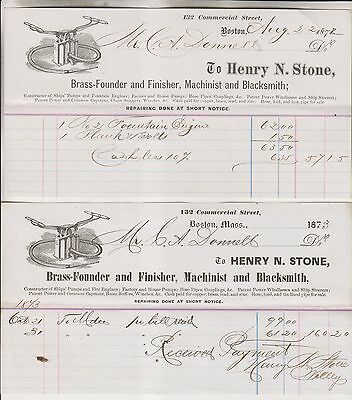 132 Commercial Street,
Boston, Aug 22 1872
Mr. C. A. Donnell Dr.
To Henry N. Stone,
Brass-Founder and Finisher, Machinist and Blacksmith;
Constructor of Ships' Pumps and Fountain Engines; Factory and House Pumps; Hose Pipes, Couplings, &c. Patent Power Windlasses and Ship Steerers;
Patent Power and Common Capstans, Chain Stoppers, Winches, &c. Cash paid for copper, brass, lead and zinc. Hose, lead, and iron pipe for sale
REPAIRING DONE AT SHORT NOTICE.
1 No 2 Fountain Engine 62.00
1 1.50
63.50
Cash less 10% 6.35 57.15
132 Commercial Street,
Boston, Mass., 1873
Mr. C. A. Donnell Dr.
To HENRY N. STONE,
Brass-Founder and Finisher, Machinist and Blacksmith,
Constructor of Ships' Pumps and Fire Engines; Factory and House Pumps; Hose Pipes, Couplings, &c. Patent Power Windlasses and Ship Steerers;
Patent Power and Common Capstans, &c. Cash paid for copper, brass, lead, and zinc. Hose, lead, and iron pipe for sale.
REPAIRING DONE AT SHORT NOTICE.
1873
Oct 21 To Mdse per bill 99.00
31 61.20 160.20
Received Payment
Henry N. Stone